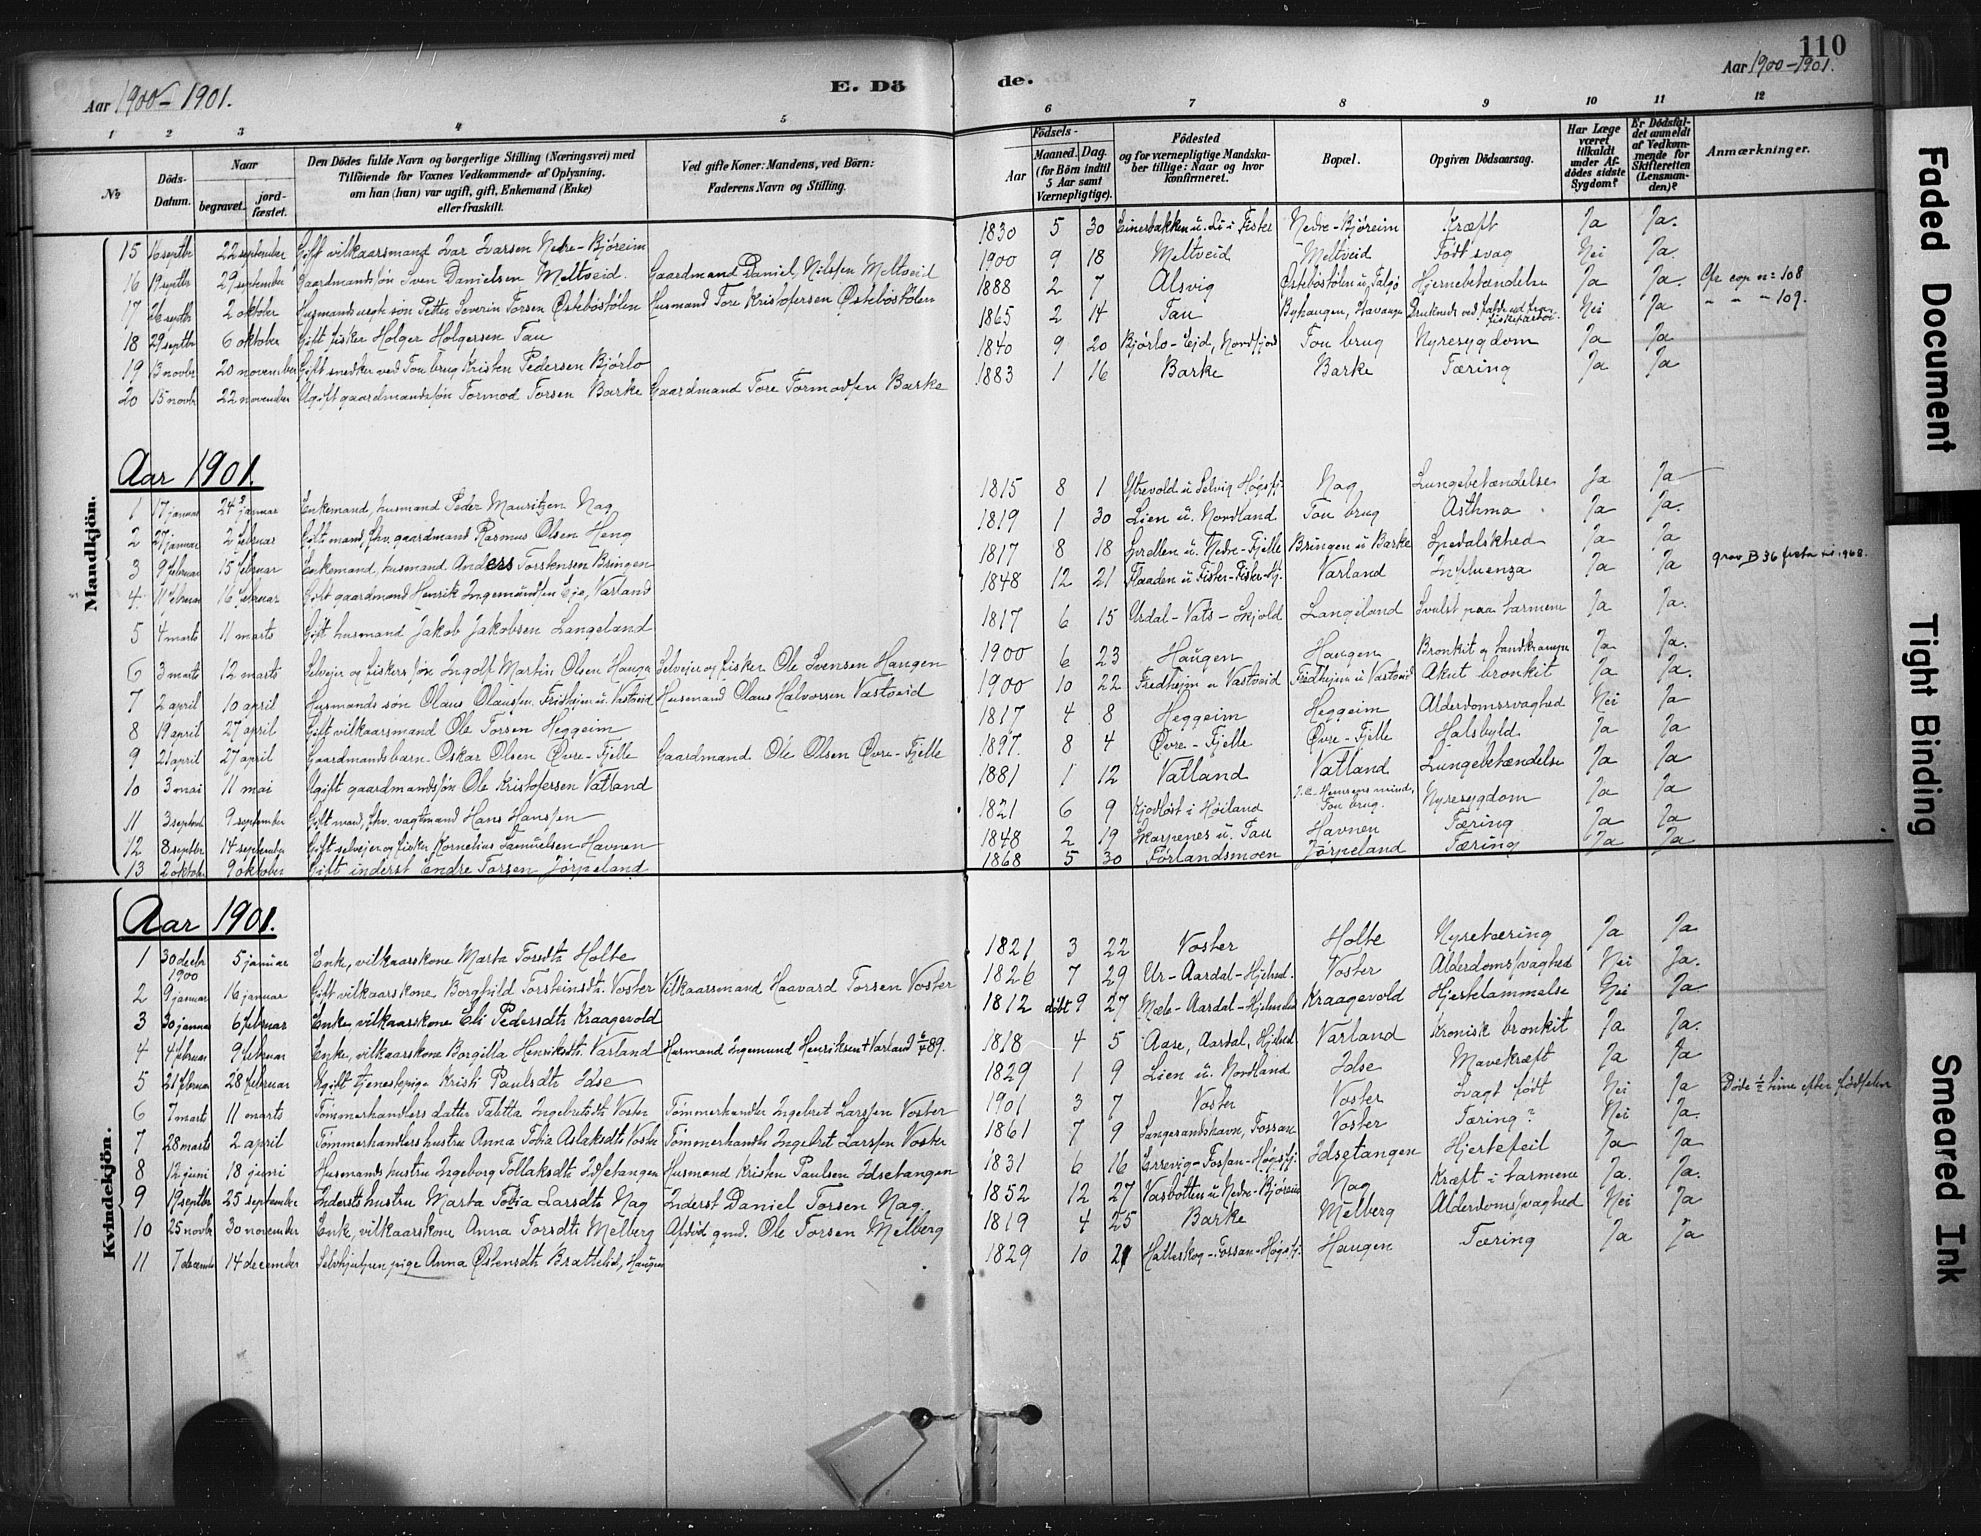 110
Aar 1900-1901.
E. Dö
de.
Aar 1900-1901.
1 2 3 4 5 6 7 8 9 10 11 12
No
Döds-Datum.
Naar
begravet.
jord-fæstet.
Den Dödes fulde Navn og borgerlige Stilling (Næringsvei) med
Tilföiende for Voxnes Vedkommende af Oplysning,
om han (hun) var ugift, gift, Enkemand (Enke)
eller fraskilt.
Ved gifte Koner: Mandens, ved Börn:
Faderens Navn og Stilling.
Födsels-
Aar
Maaned. Dag.
(for Börn indtil
5 Aar samt
Værnepligtige).
Födested
og for værnepligtige Mandska-
ber tillige: Naar og hvor
konfirmeret.
Bopæl.
Opgiven Dödsaarsag.
Har Læge
været
tilkaldt
under Af-
dödes sidste
Sygdom?
Er Dödsfal-
det anmeldt
af Vedkom-
mende for
Skifteretten
(Lensman-
den)?
Anmærkninger.
Mandkjön.
15 16 septbr 22 september Gift vilkaarsmand Ivar Ivarsen Nedre-Björeim 1830 5 30 Einerbakken u. Li i Fister Nedre-Björeim Kræft Ja Ja.
16 19 septbr 29 september Gaardmandssön Sven Danielsen Meltveid. Gaardmand Daniel Nilssen Meltveid 1900 9 18 Meltveid Meltveid Födt svag Nei Ja.
17 26 septbr 2 oktober Husmands ugifte sön Petter Severin Torsen Östeböstölen Husmand Tore Kristofersen Östebøstölen 1888 2 7 Alsvig Østeböstölen u. Talgö Hjernebetændelse Ja Ja. cop n: 108
18 29 septbr 6 oktober Gift fisker Holger Holgersen Tau 1865 2 14 Tau Byhaugen, Stavanger Druknede ved Nei Ja " " " 109.
19 13 novbr 20 november Gift snedker ved Tou brug Kristen Pedersen Bjørlo 1840 9 20 Bjørlo-Ejd, Nordfjord Tou brug Nyresygdom Ja Ja
20 15 novbr 22 november Ugift gaardmandssön Tormod Torsen Barke Gaardmand Tore Tormodsen Barke 1883 1 16 Barke Barke Tæring Ja Ja
Aar 1901.
1 17 januar 24 januar Enkemand, husmand Peder Mauritzen Nag 1815 8 1 Ytrevold u. Selvig Högsfj. Nag Lungebetændelse Ja Ja
2 27 januar 2 februar Gift mand, fhv. gaardmand Rasmus Olsen Heng 1819 1 30 Lien u. Nordland Tou brug Asthma Ja Ja.
3 9 februar 15 februar Enkemand, husmand Anders Torstensen Bringen 1817 8 18 u. Nedre-Fjelle Bringen u. Barke Spedalskhed Ja Ja
4 11 februar 16 februar Gift gaardmand Henrik Ingemundsen Eja, Varland 1848 12 21 Flaaden u Fister-Fister-Hj. Varland Influenza Ja Ja grav B 36 1968.
5 4 marts 11 marts Gift husmand Jakob Jakobsen Langeland 1817 6 15 Urdal-Vats-Skjold Langeland Svulst paa tarmene Ja Ja.
6 3 marts 12 marts Selvejer og fiskers sön Ingolf Martin Olsen Haugen Selvejer og fisker Ole Svensen Haugen 1900 6 23 Haugen Haugen Bronkit og tandkrampe Ja Ja.
7 2 april 10 april Husmands sön Olaus Olaussen Fredheim u. Vastveid Husmand Olaus Halvorsen Vastveid 1900 10 22 Fredheim u Vastveid Fredheim u Vastveid Akut bronkit Ja Ja.
8 19 april 27 april Gift vilkaarsmand Ole Torsen Heggeim 1817 4 8 Heggeim Heggeim Alderdomssvaghed Nei Ja
9 21 april 27 april Gaardmands barn Oskar Olsen Øvre-Fjelle Gaardmand Ole Olsen Øvre-Fjelle 1897. 8 4 Øvre-Fjelle Øvre-Fjelle Halsbyld Ja Ja
10 3 mai 11 mai Ugift gaardmandssön Ole Kristofersen Vatland 1881 1 12 Vatland Vatland Lungebetændelse Ja Ja
11 3 septbr 9 september Gift mand, fhv. vagtmand Hans Hanssen 1821 6 9 i Høiland Tou brug. Nyresygdom Ja Ja
12 8 septbr 14 september Gift selvejer og fisker Kornelius Samuelsen Havnen 1848 2 19 Skarpenes u. Tau Havnen Tæring Ja Ja
13 2 oktober 9 oktober Gift inderst Endre Torsen Jörpeland 1868 5 30 Förlandsmoen Jörpeland Tæring Ja Ja
Kvindekjön.
Aar 1901.
1 30 decbr 1900 5 januar Enke, vilkaarskone Marta Torsdtr Holte 1821 3 22 Voster Holte Nyretæring Ja Ja
2 9 januar 16 januar Gift vilkaarskone Borghild Torsteinsdtr. Voster Vilkaarsmand Haavard Torsen Voster 1826 7 29 Ur-Aardal-Hjelmel. Voster Alderdomssvaghed Nei Ja.
3 30 januar 6 februar Enke, vilkaarskone Eli Pedersdtr Kraagevold 1812 döbt 9 27 Mæle-Aardal-Hjelmeland Kraagevold Hjertelammelse Nei Ja
4 4 februar 9 februar Enke, vilkaarskone Borgilla Henriksdtr. Varland Husmand Ingemund Henriksen Varland 89. 1818 4 5 Aase, Aardal, Hjelmel. Varland Kronisk bronkit Ja Ja.
5 21 februar 28 februar Ugift tjenestepige Kristi Paulsdtr Idse 1829 1 9 Lien u. Nordland Idse Mavekræft Ja Ja
6 7 marts 11 marts Tömmerhandlers datter Taletta Ingebretsdtr Voster Tömmerhandler Ingebret Larssen Voster 1901 3 7 Voster Voster Svagt född Nei Ja Döde ½ time efter fødselen
7 28 marts 2 april Tömmerhandlers hustru Anna Tobia Aslaksdtr Voster Tömmerhandler Ingebret Larssen Voster 1861 7 9 Langesandshavn, Fossan Voster Tæring? Nei Ja.
8 12 juni 18 juni Husmands hustru Ingeborg Tollaksdtr Idsetangen Husmand Kristen Paulsen Idsetangen 1831 6 16 Errevig-Fossan-Högsfj. Idsetangen Hjertefeil Ja Ja
9 19 septbr 25 september Indersts hustru Marta Tobia Larsdtr Nag Inderst Daniel Torsen Nag. 1852 12 27 Vasbotten u Nedre-Björeim Nag Kræft i tarmene Ja. Ja.
10 25 novbr 30 november Enke, vilkaarskone Anna Torsdtr Melberg Afdöd gmd. Ole Torsen Melberg 1819 4 25 Barke Melberg Alderdomssvaghed Nei Ja
11 7 decembr 14 december Selvhjulpen pige Anna Østensdtr Brattelid, Haugen 1829 10 21 Hatleskog-Fossan-Högsfj. Haugen Tæring Ja Ja
Faded Document
Tight Binding
Smeared Ink